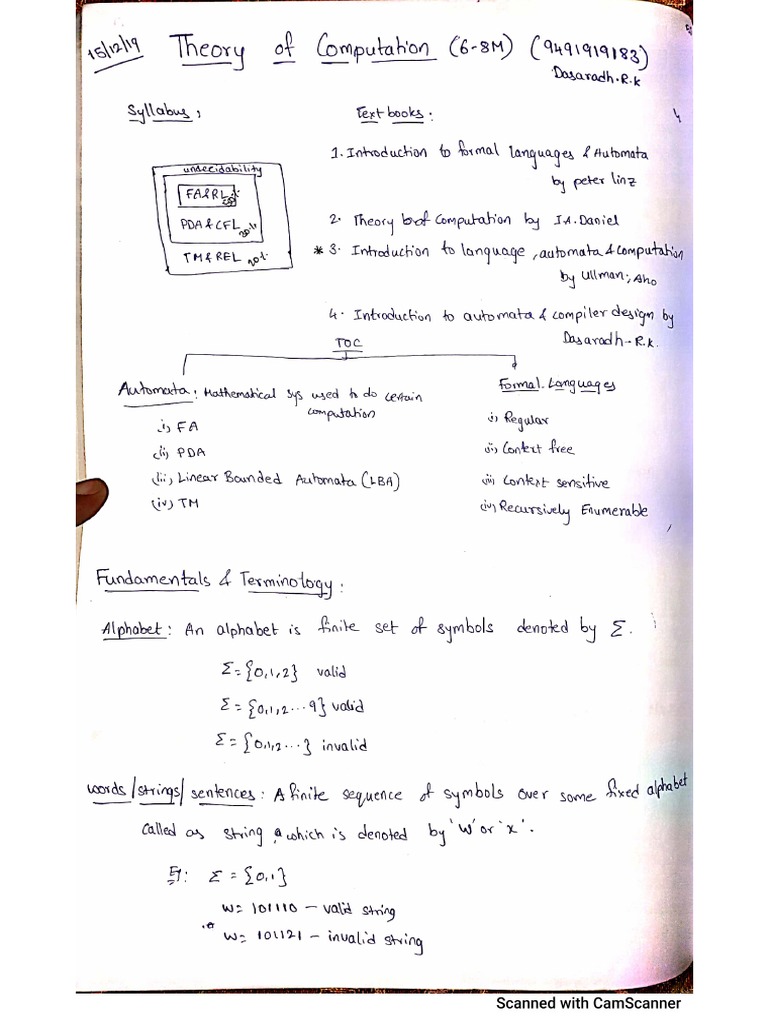 15/12/19 Theory of Computation (6-8M) (9491919183)
Dasaradh.R.K
Syllabus,
Text books:
undecidability
FA&RL
PDA & CFL 20%
TM & REL 20%
1. Introduction to formal languages & Automata
by peter linz
2. Theory of computation by I.A. Daniel
* 3. Introduction to language, automata & computation
by Ullman; Aho
4. Introduction to automata & compiler design by
Dasaradh-R.K.
TOC
Automata: Mathematical sys used to do certain
computation
i) FA
(ii) PDA
(iii) Linear Bounded Automata (LBA)
(iv) TM
Formal. Languages
i) Regular
ii) Context free
iii) Context sensitive
(iv) Recursively Enumerable
Fundamentals & Terminology:
Alphabet: An alphabet is finite set of symbols denoted by Σ.
Σ = {0,1,2} valid
Σ = {0,1,2...9} valid
Σ = {0,1,2...} invalid
words/strings/sentences: A finite sequence of symbols over some fixed alphabet
called as string which is denoted by 'w' or 'x'.
Eg: Σ = {0,1}
w= 101110 - valid string
w= 101121 - invalid string
Scanned with CamScanner